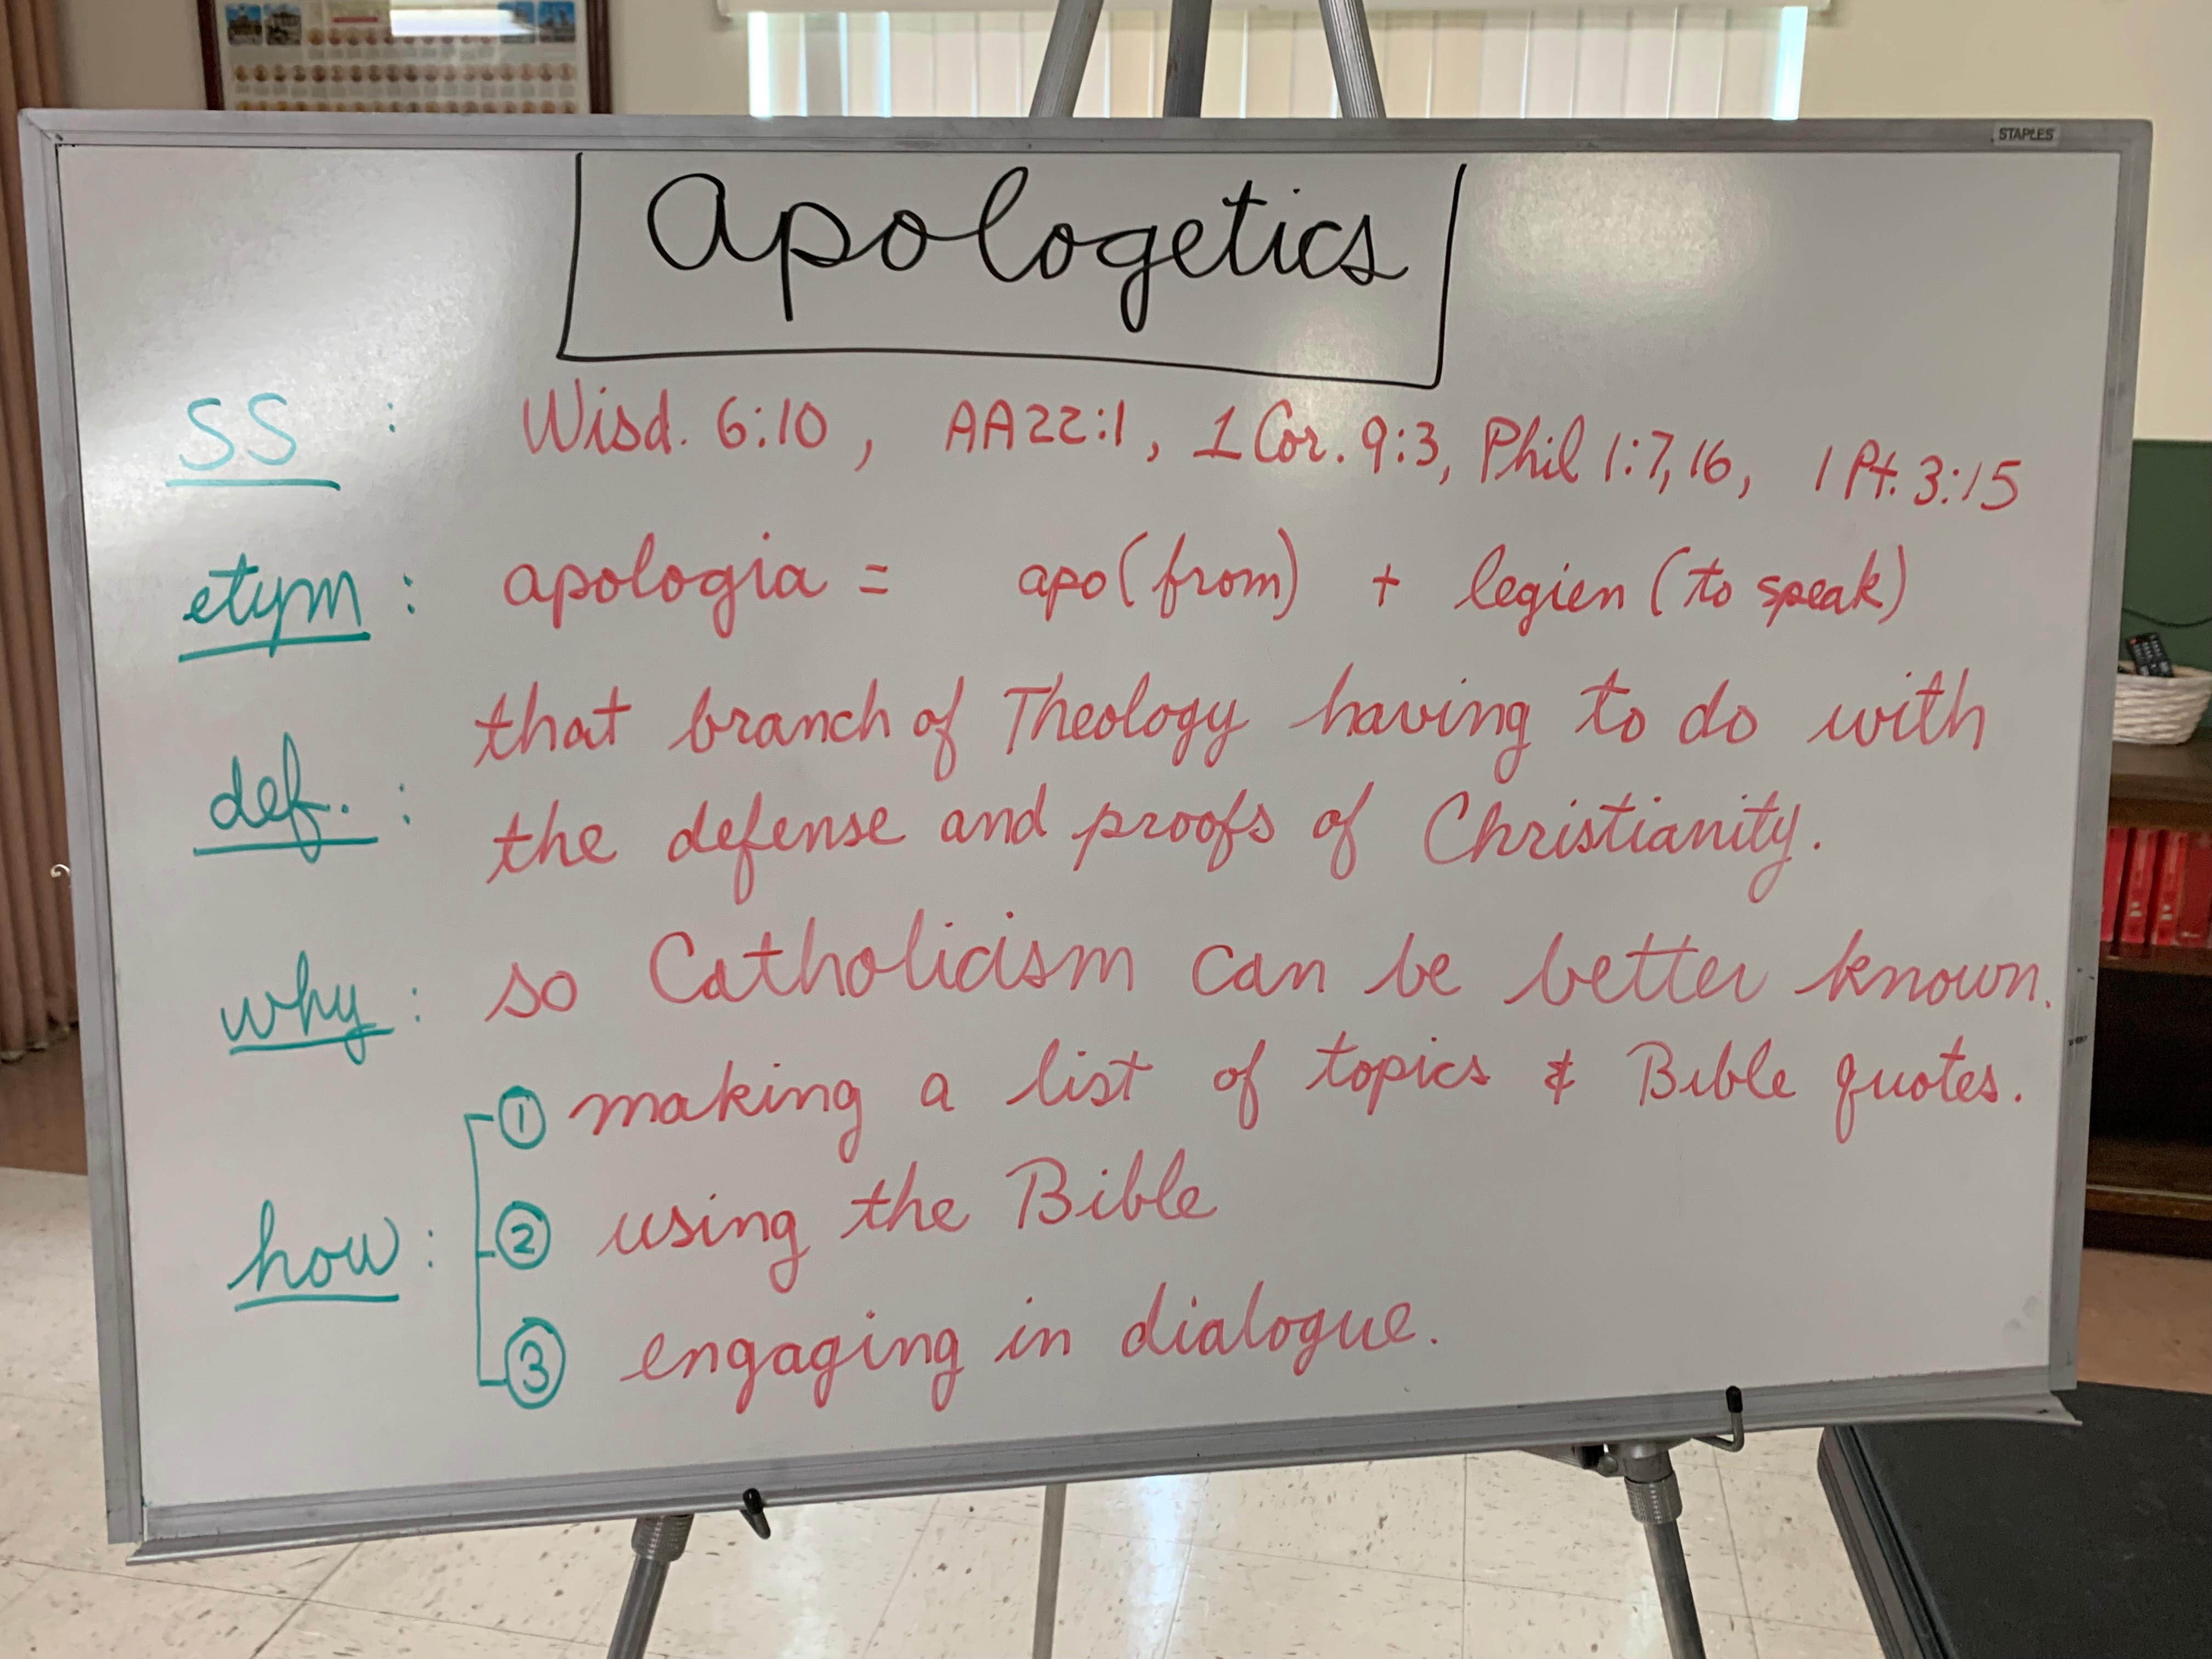 STAPLES
Apologetics
SS : Wisd. 6:10, AA22:1, 1 Cor. 9:3, Phil 1:7,16, 1 Pt. 3:15
etym : apologia = apo (from) + legien (to speak)
def. : that branch of Theology having to do with
the defense and proofs of Christianity.
why : so Catholicism can be better known.
how : ① making a list of topics & Bible quotes.
② using the Bible
③ engaging in dialogue.